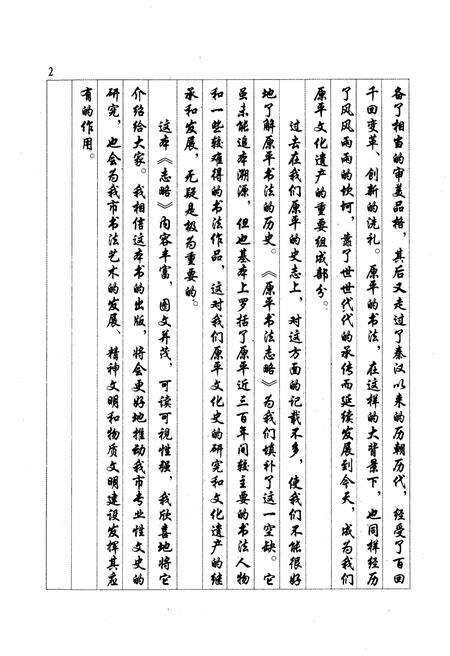 2
备了相当的审美品格，其后又走过了秦汉以来的历朝历代，经受了百回
千回变革、创新的洗礼。原平的书法，在这样的大背景下，也同样经历
了风风雨雨的坎坷，靠了世世代代的承传而延续发展到今天，成为我们
原平文化遗产的重要组成部分。
过去在我们原平的史志上，对这方面的记载不多，使我们不能很好
地了解原平书法的历史。《原平书法志略》为我们填补了这一空缺。它
虽未能追本溯源，但也基本上罗括了原平近三百年间较主要的书法人物
和一些较难得的书法作品，这对我们原平文化史的研究和文化遗产的继
承和发展，无疑是极为重要的。
这本《志略》内容丰富，图文并茂，可读可视性强，我欣喜地将它
介绍给大家。我相信这本书的出版，将会更好地推动我市专业性文史的
研究，也会为我市书法艺术的发展、精神文明和物质文明建设发挥其应
有的作用。